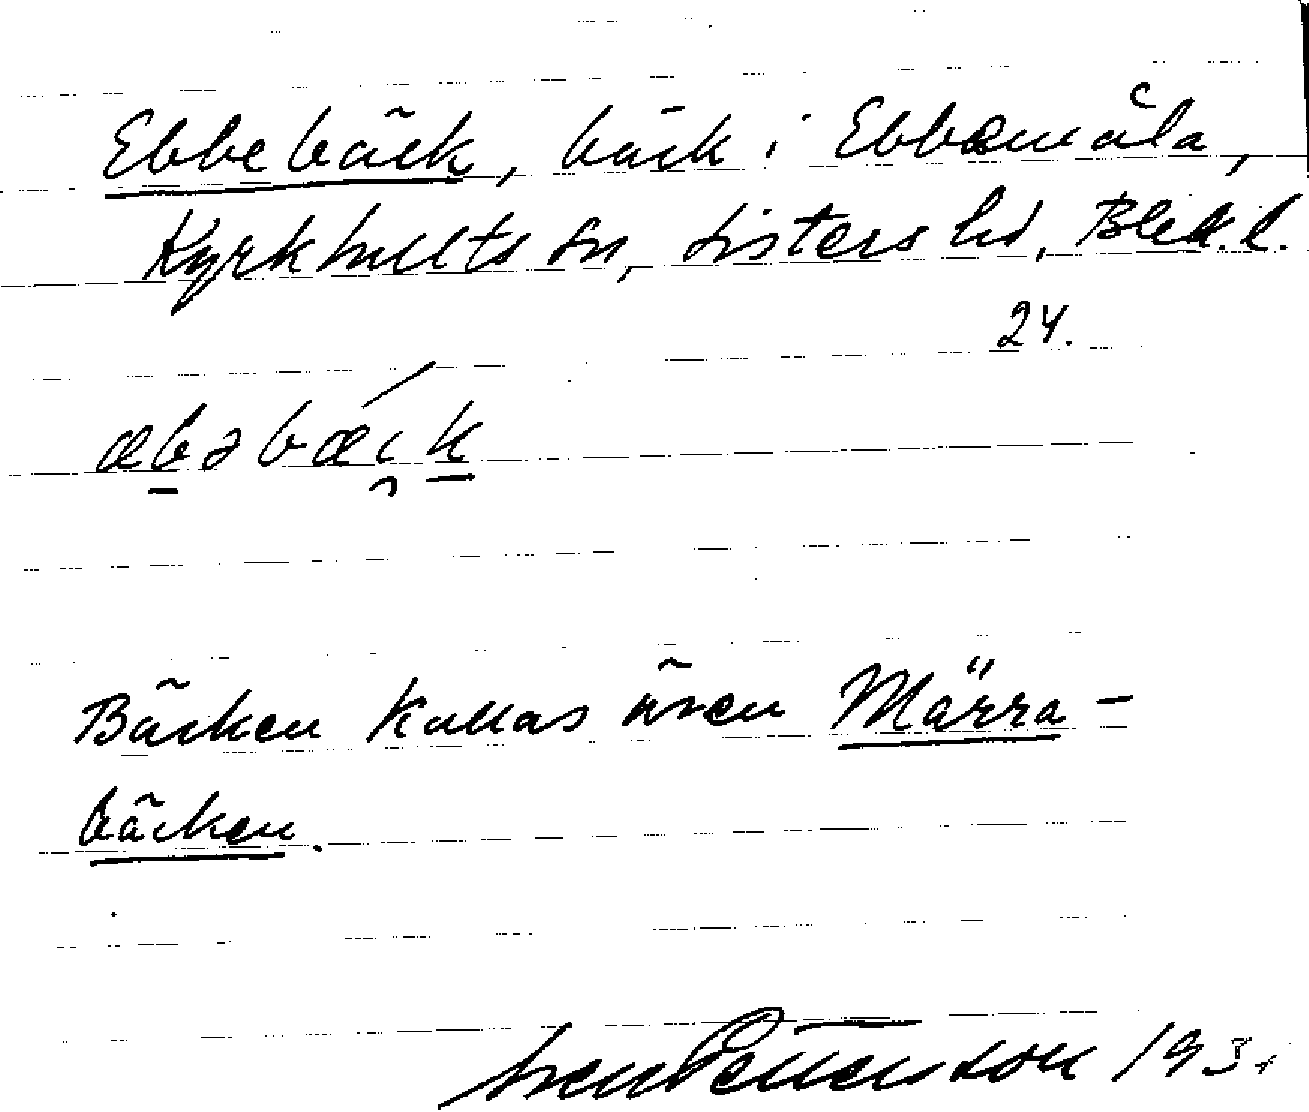 Ebbebäck, bäck i Ebbemåla,
Kyrkhults sn, Listers hd, Blek. l.
24.
æbəbæik
Bäcken kallas även Märra-
bäcken.
Sven Pettersson 193